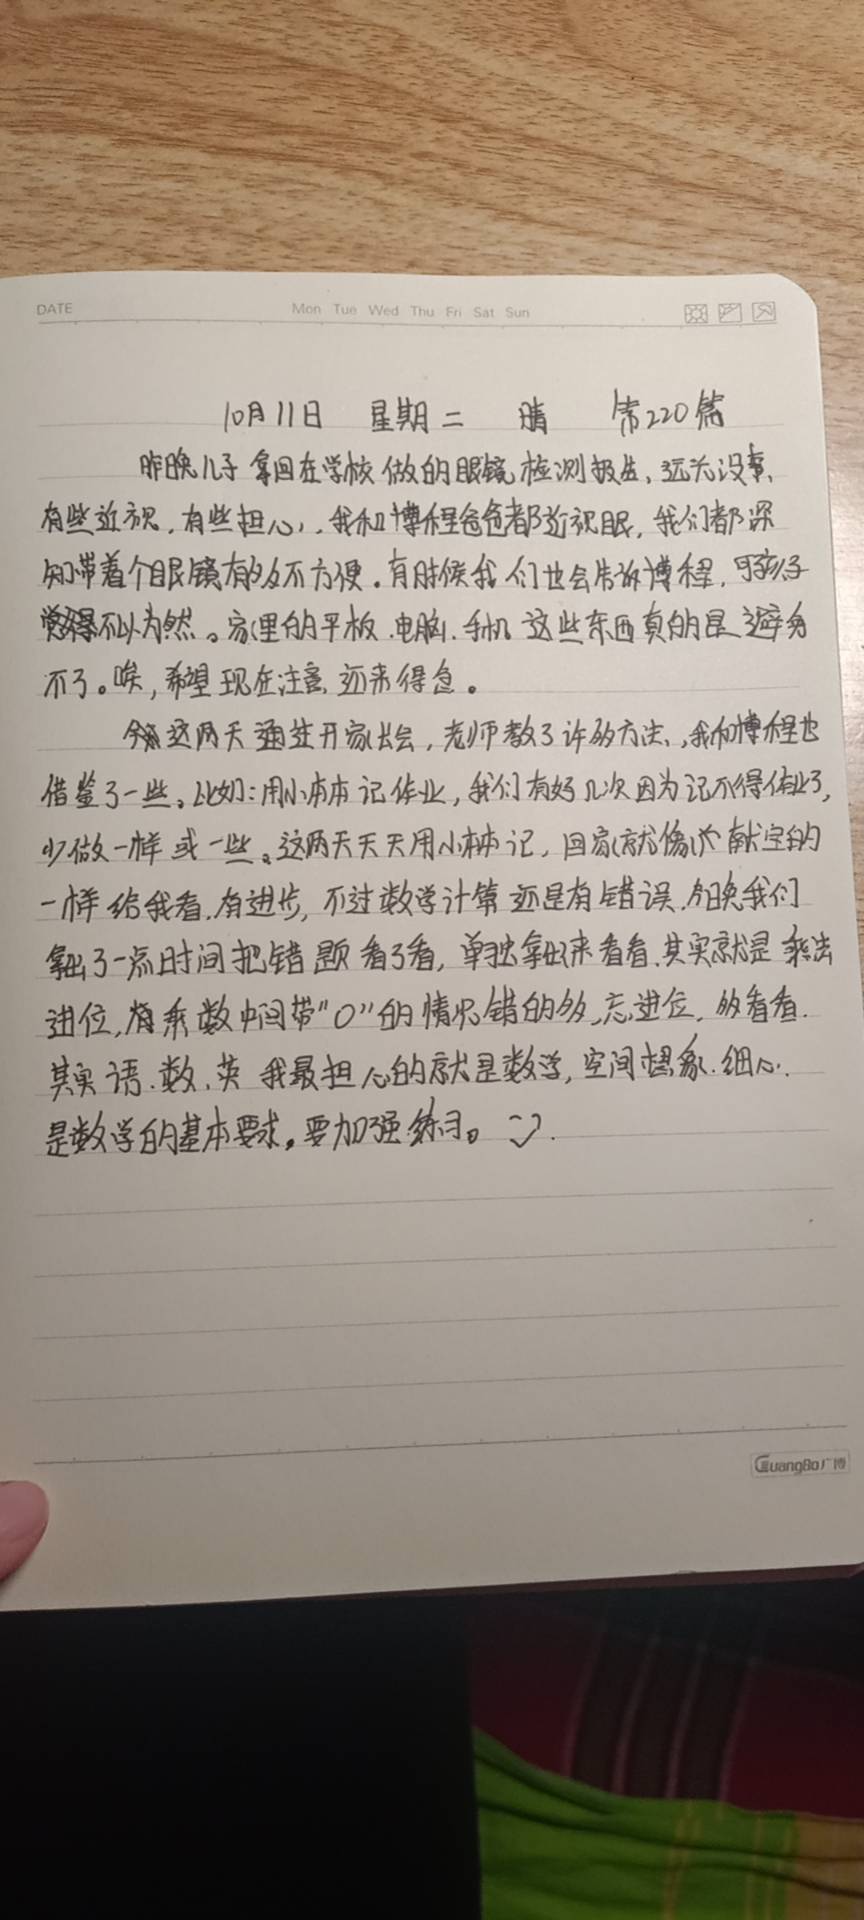 DATE Mon Tue Wed Thu Fri Sat Sun
10月11日 星期二 晴 第220篇
昨晚儿子拿回在学校做的眼镜检测报告、远光没事、
有些近视，有些担心，我和博程爸爸都近视眼，我们都深
知带着个眼镜有多不方便。有时候我们也会告诉博程，可孩子
觉得不以为然。家里的平板、电脑、手机 这些东西真的是避免
不了。唉，希望现在注意还来得急。
这两天通过开家长会，老师教了许多方法，我和博程也
借鉴了一些。比如：用小本本记作业，我们有好几次因为记不得作业了，
少做一样或一些。这两天天天用小本本记，回家就像献宝的
一样给我看，有进步，不过数学计算还是有错误，今晚我们
拿出了一点时间把错题看了看，单独拿出来看看，其实就是乘法
进位，有乘数中间带“0”的情况错的多，忘进位，多看看.
其实语、数、英 我最担心的就是数学，空间想象、细心.
是数学的基本要求。要加强练习。
GuangBo广博